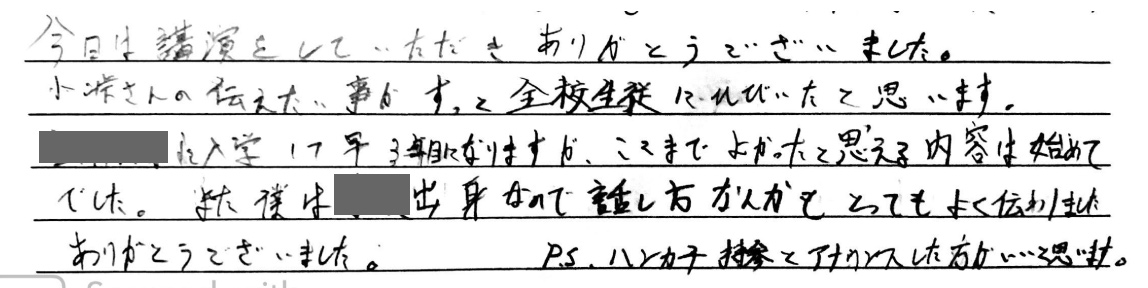 今日は講演をしていただきありがとうございました。
小渋さんの伝えたい事がすっと全校生徒にひびいたと思います。
に入学して早3年目になりますが、ここまでよかったと思える内容は始めて
でした。また僕は出身なので話し方なんかもとってもよく伝わりました
ありがとうございました。 P.S.ハンカチ持参とアナウンスした方がいいと思います。